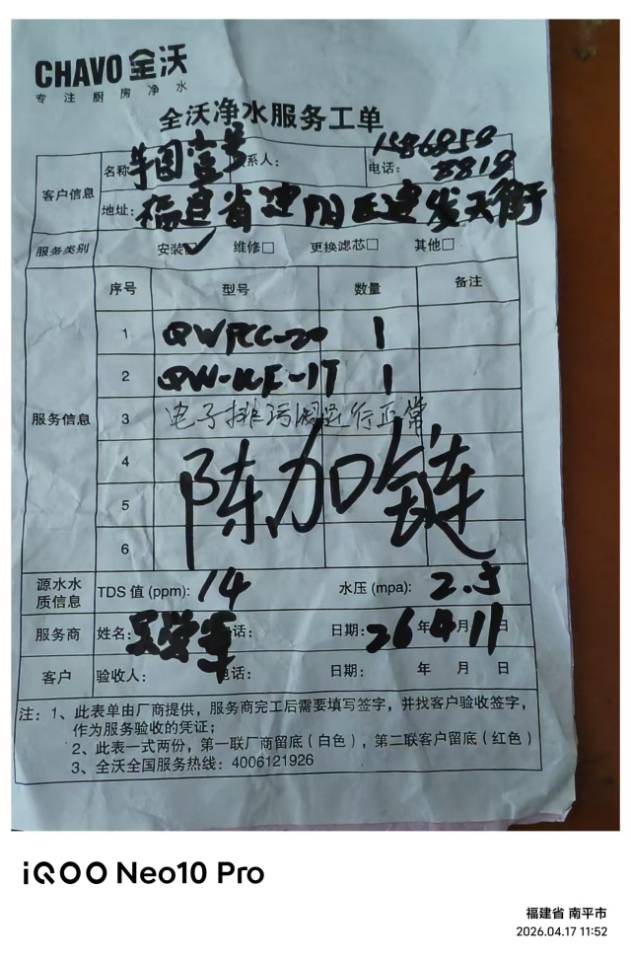 CHAVO 全沃
专注厨房净水
全沃净水服务工单
客户信息
名称: 联系人: 电话: 1586858
8818
地址: 福建省建阳区建发天街
服务类别 安装☑ 维修□ 更换滤芯□ 其他□
服务信息
序号 型号 数量 备注
1 1
2 1
3 电子排污阀运行正常
4
5
6
陈加链
源水水质信息 TDS 值 (ppm): 14 水压 (mpa): 2.5
服务商 姓名: 电话: 日期: 26年4月11日
客户 验收人: 电话: 日期: 年 月 日
注: 1、此表单由厂商提供，服务商完工后需要填写签字，并找客户验收签字，
作为服务验收的凭证；
2、此表一式两份，第一联厂商留底（白色），第二联客户留底（红色）
3、全沃全国服务热线: 4006121926
iQOO Neo10 Pro
福建省 南平市
2026.04.17 11:52